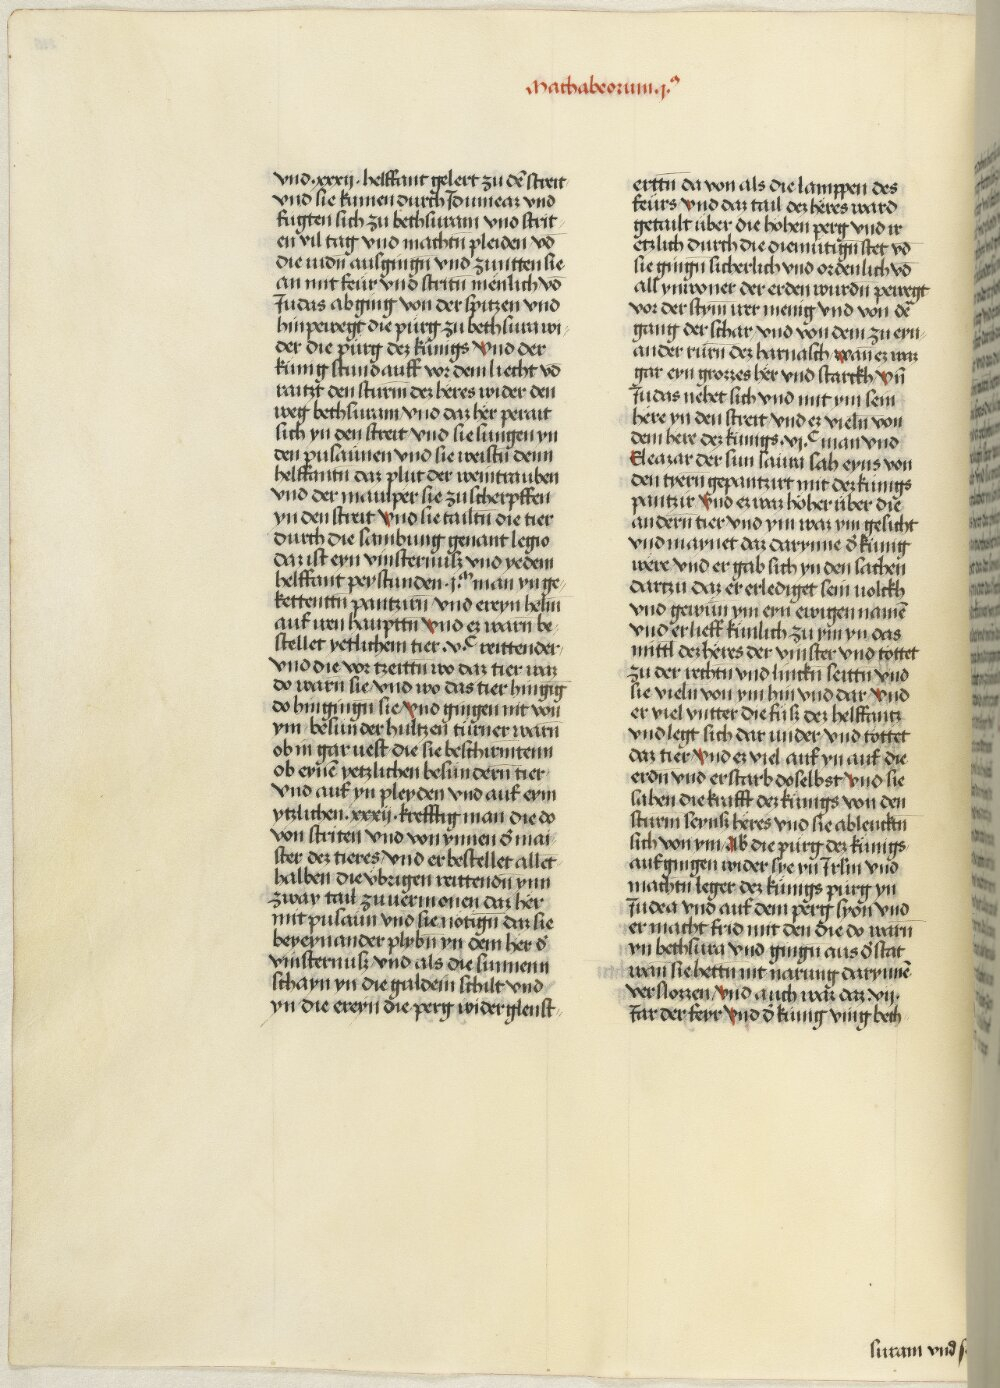 Machabeorum .j.ª
vnd .xxxij. helffant gelert zu dē streit
vnd sie kumen durch Jdumeaz vnd
fugten sich zu bethsuram vnd strit-
en vil tag vnd machtn pleiden vd
die iudn ausgingn vnd zuntten sie
an mit feur vnd stritn menlich vd
Judas abging von der spitzen vnd
hinpewegt die purg zu bethsura wi-
der die purg dez kunigs Vnd der
kunig stund auff vor dem liecht vd
raitzt den sturm dez heres wider den
weg bethsuram vnd daz her perait
sich yn den streit vnd sie sungen yn
den pusaunen vnd sie weistn denn
helffantn daz plut der weintrauben
vnd der maulper sie zu scherpffen
yn den streit Vnd sie tailtn die tier
durch die sambung genant legio
daz ist eyn vinsternusz vnd yedem
helffant peystunden .j.ᵐ man yn ge-
kettentn pantzurn vnd ereyn helm
auf iren haupttn Vnd ez warn be-
stellet yetlichem tier .v.ᶜ reittender
vnd die vor tzeittn wo daz tier waz
do warn sie vnd wo das tier hingig
do hingingn sie Vnd gingen nit von
ym besunder hultzen turner warn
ob in gar uest die sie beschirmtenn
ob eynē yetzlichen besundern tier
vnd auf yn pleyden vnd auf eym
ytzlichen .xxxij. krefftig man die do
von striten vnd von ynnen d̄ mai-
ster dez tieres vnd er bestellet allet-
halben die vbrigen reittendn ynn
zway tail zu uermonen daz her
mit pusaun vnd sie notign daz sie
beyeynander plybn yn dem her d̄
vinsternusz vnd als die sunnenn
schayn yn die guldein schilt vnd
yn die ereyn die perg wider glenst-
erttn da von als die lamppen des
feurs vnd daz tail dez heres ward
getailt uber die hohen perg vnd ir
etzlich durch die diemutign stet vd
sie gingn sicherlich vnd ordenlich vd
all ynwoner der erden wurdn pewegt
vor der stym irer menig vnd von dē
gang der schar vnd von dem zu eyn-
ander rurn dez harnasch wan ez waz
gar eyn grozzes her vnd starckh Vn̄
Judas nehet sich vnd mit ym sein
here yn den streit vnd ez vieln von
dem here dez kunigs .vj.ᶜ man vnd
Eleazar der sun saura sah eyns von
den tyern gepantzirt mit dez kunigs
pantzir Vnd ez waz hoher uber die
andern tier vnd ym waz ym gesicht
vnd maynet daz darynne d̄ kunig
were vnd er gab sich yn den sachen
dartzu daz er erlediget sein uolckh
vnd gewun ym eyn ewigen namē
vnd er lieff kunlich zu ym yn das
mittl dez heres der vinster vnd tottet
zu der rechtn vnd linckn seittn vnd
sie vieln von ym hin vnd dar Vnd
er viel vntter die fusz dez helffantz
vnd legt sich dar under vnd tottet
daz tier Vnd ez viel auf yn auf die
erdn vnd er starb doselbst Vnd sie
sahen die krafft dez kunigs von den
sturm seynsz heres vnd sie ablencktn
sich von ym Ab die purg dez kunigs
aufgingen wider sye yn Jrlm vnd
machtn leger dez kunigs purg yn
Judea vnd auf dem perg syon vnd
er macht frid mit den die do warn
yn bethsura vnd gingn aus d̄ stat
wan sie hettn nit narung darynnē
verslozzen Vnd auch waz daz .vij.
Jar der feyr Vnd d̄ kunig ving beth-
suram vnd s